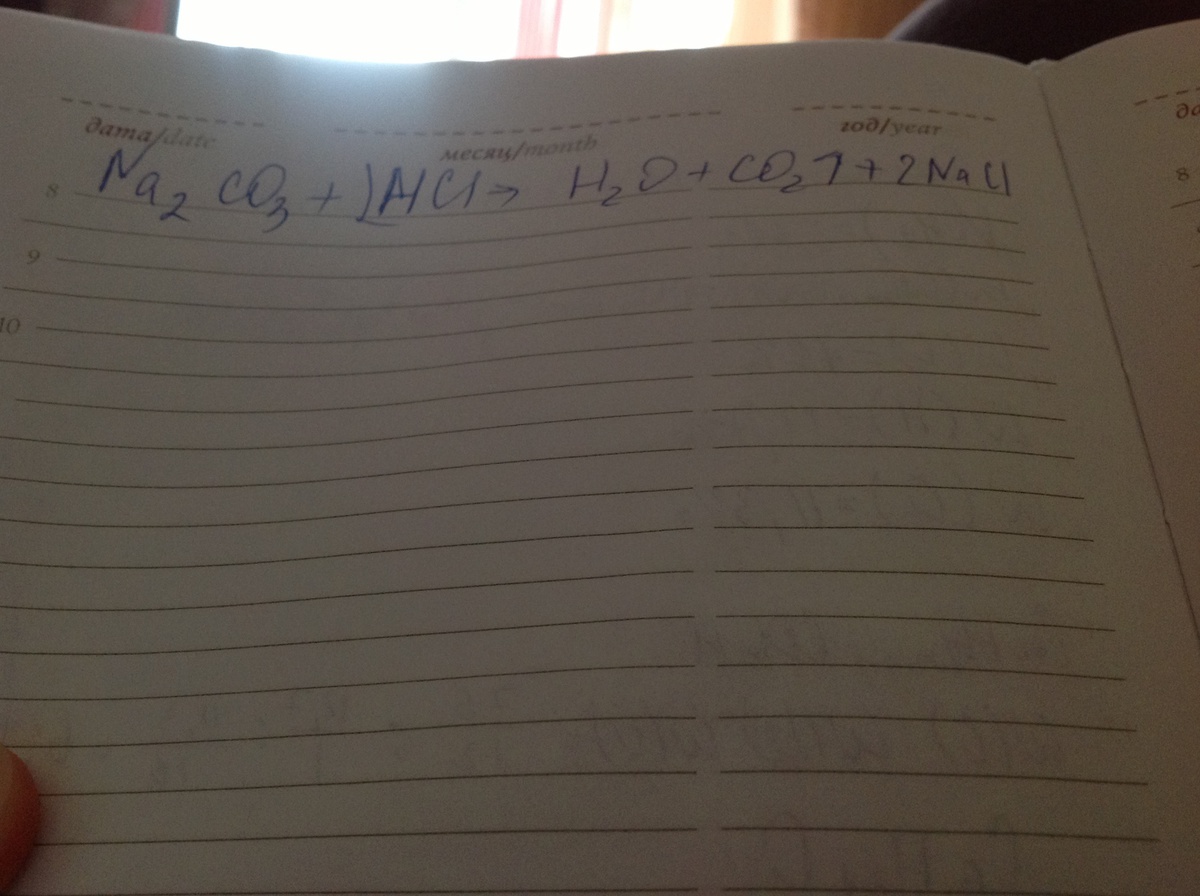 дата/date месяц/month год/year
8 Na₂CO₃ + 2HCl → H₂O + CO₂↑ + 2NaCl 8
9
10